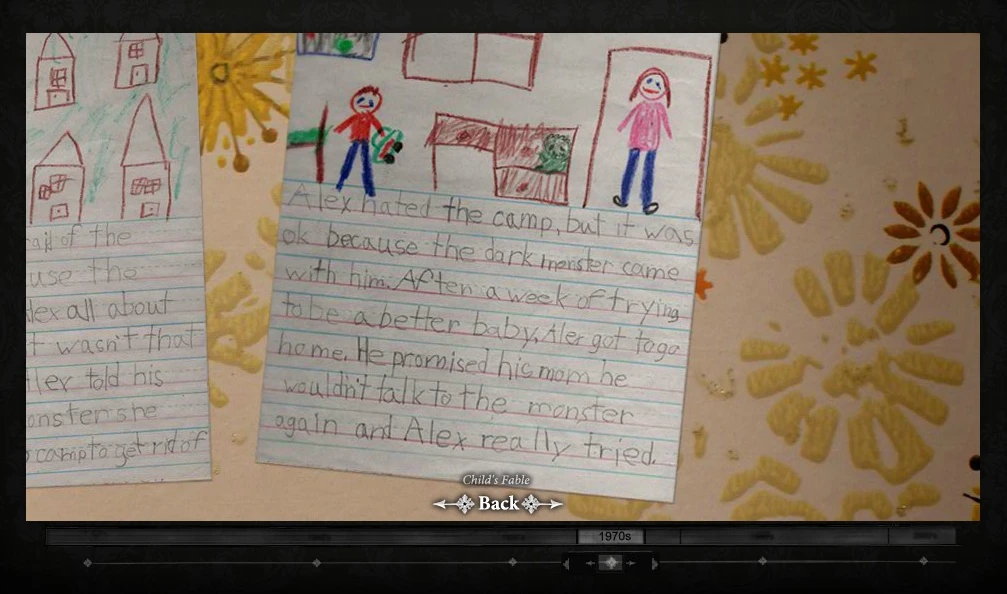 ail of the
use the
lex all about
t wasn't that
ler told his
onster she
camp to get rid of
Alex hated the camp, but it was
ok because the dark monster came
with him. After a week of trying
to be a better baby, Alex got to go
home. He promised his mom he
wouldn't talk to the monster
again and Alex really tried.
Child's Fable
Back
1970s